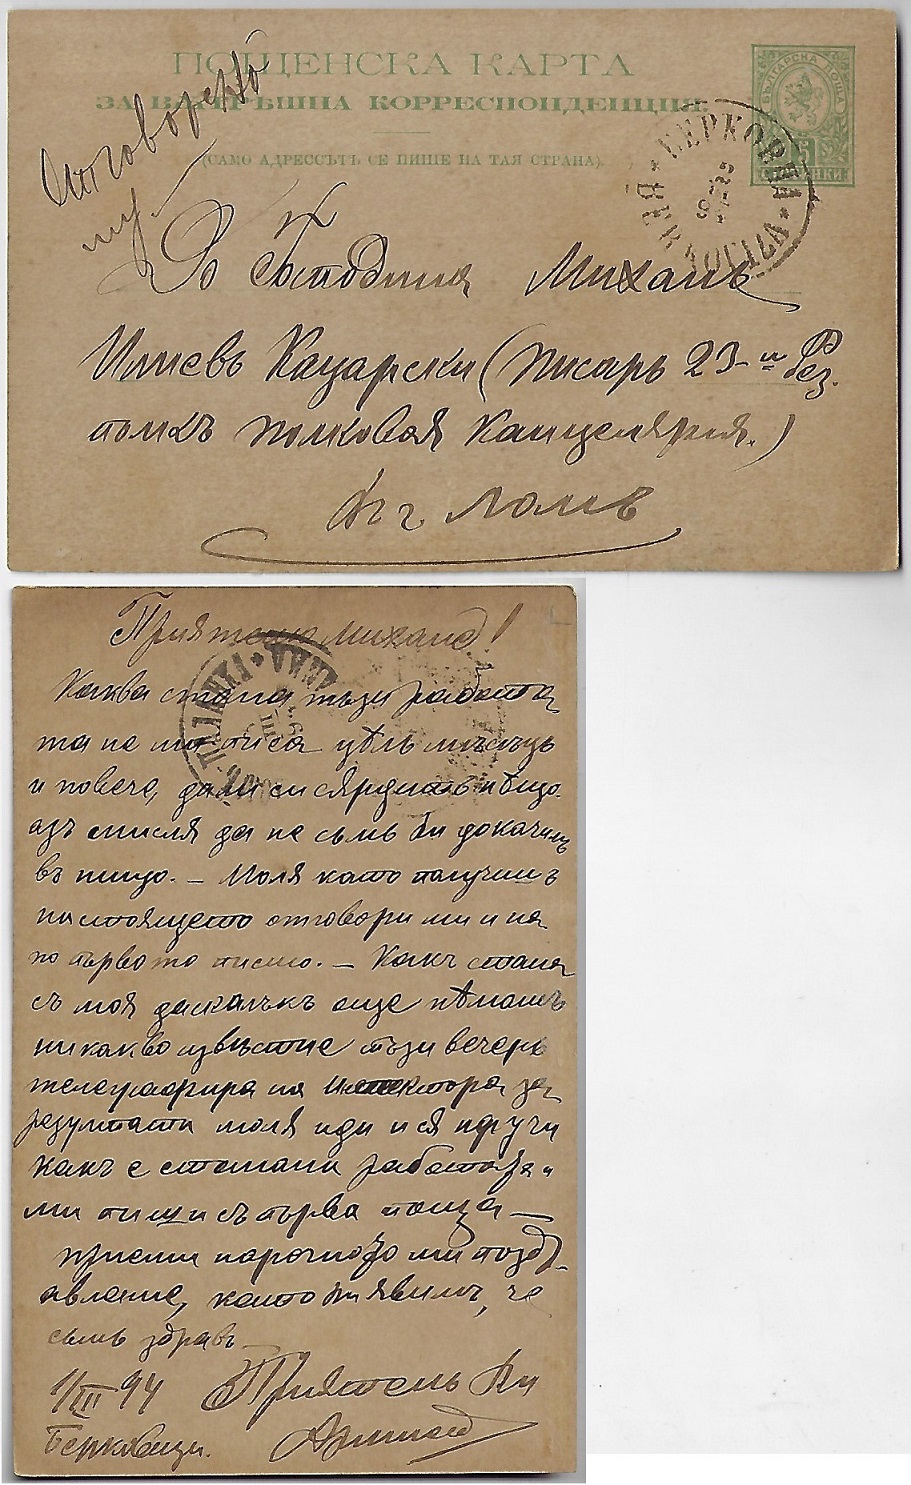 ПОЩЕНСКА КАРТА
ЗА ВѪТРѢШНА КОРРЕСПОНДЕНЦИЯ.
(САМО АДРЕССЪТЪ СЕ ПИШЕ НА ТАЯ СТРАНА).
БЪЛГАРСКА ПОЩА
5
БЕРКОВЦА
Отговорено
До Господина Михаилъ
Илиевъ Кацарски (Писарь 23-и Рез.
полкъ полковая Канцелярия.)
Въ г Ломъ
Приятелю Михаиле!
Каква стана тъзи работа
та не ми писа цѣлъ мѣсецъ
и повече, дали си сърдитъ нѣщо.
азъ мисля да не съмъ Ви докачилъ
въ нищо. — Моля като получишъ
настоящето отговори ми и на
по първото писмо. — Какъ стана
съ моя даскалъкъ още нѣмамъ
никакво извѣстие тъзи вечерь
телеграфира на Инспектора за
резултати моля иди и ся научи
какъ е станала работата и
ми пиши съ първа поща —
приеми нарочното ми поздр-
авление, като Ви явимъ, че
съмъ здравъ —
1/III 94 Приятель Ви
Берковица.